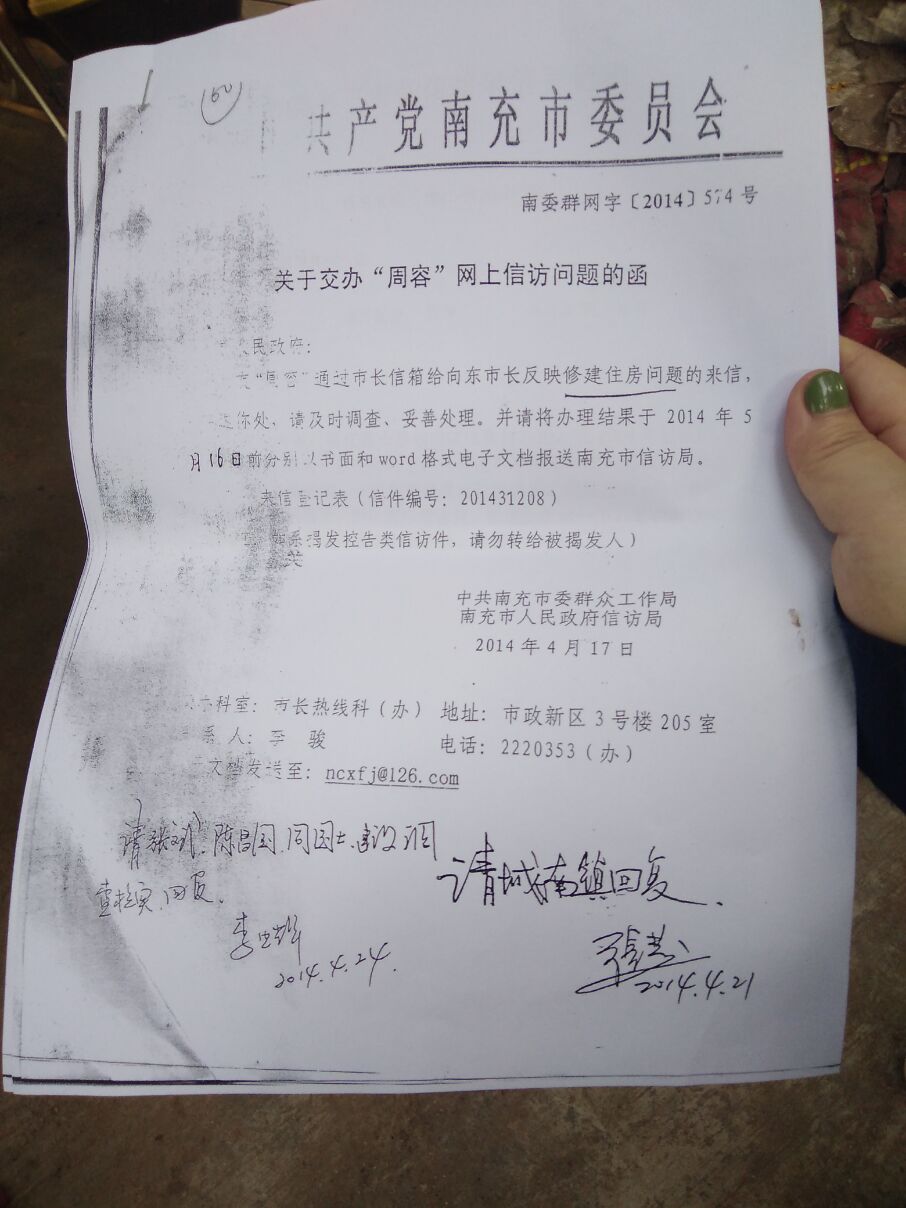 60
共产党南充市委员会
南委群网字〔2014〕574号
关于交办“周容”网上信访问题的函
民政府：
“周容”通过市长信箱给向东市长反映修建住房问题的来信，
你处，请及时调查、妥善处理。并请将办理结果于 2014 年 5
月16日前分别以书面和word格式电子文档报送南充市信访局。
来信登记表（信件编号：201431208）
系揭发控告类信访件，请勿转给被揭发人）
关
中共南充市委群众工作局
南充市人民政府信访局
2014 年 4 月 17 日
科室：市长热线科（办） 地址：市政新区3号楼205室
系 人：李 骏 电话：2220353（办）
文档发送至：ncxfj@126.com
请城南镇回复.
2014.4.21
请张斌、陈昌国、同国土、建设调
查核实、回复.
2014.4.24.